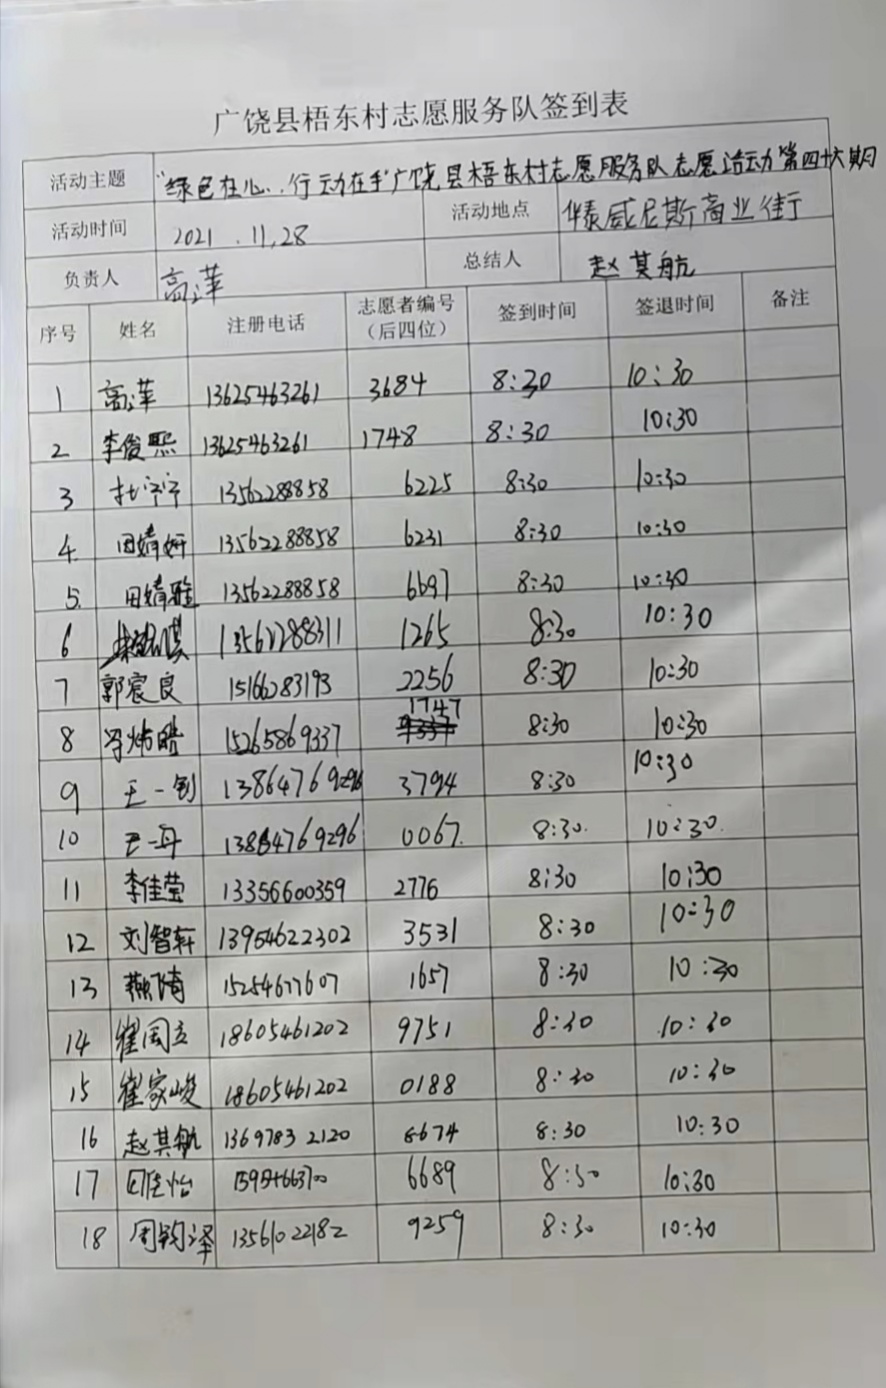 广饶县梧东村志愿服务队签到表
活动主题 "绿色在心、行动在手"广饶县梧东村志愿服务队志愿活动第四十六期
活动时间 2021.11.28 活动地点 华泰威尼斯商业街
负责人 高萍 总结人 赵其航
序号 姓名 注册电话 志愿者编号（后四位） 签到时间 签退时间 备注
1 高萍 13625463261 3684 8:30 10:30
2 李俊熙 13625463261 1748 8:30 10:30
3 杜宁宁 13562288858 6225 8:30 10:30
4 田婧妍 13562288858 6231 8:30 10:30
5 田婧雅 13562288858 6697 8:30 10:30
6 13562288311 1265 8:30 10:30
7 郭宸良 15166283193 2256 8:30 10:30
8 15265869337 1747 8:30 10:30
9 王一钊 13864769296 3794 8:30 10:30
10 王一丹 13864769296 0067 8:30 10:30
11 李佳莹 13356600359 2776 8:30 10:30
12 刘智轩 13954622302 3531 8:30 10:30
13 15254677607 1657 8:30 10:30
14 崔国立 18605461202 9751 8:30 10:30
15 崔家峻 18605461202 0188 8:30 10:30
16 赵其航 13697832120 8674 8:30 10:30
17 6689 8:30 10:30
18 周钧泽 13561022182 9259 8:30 10:30